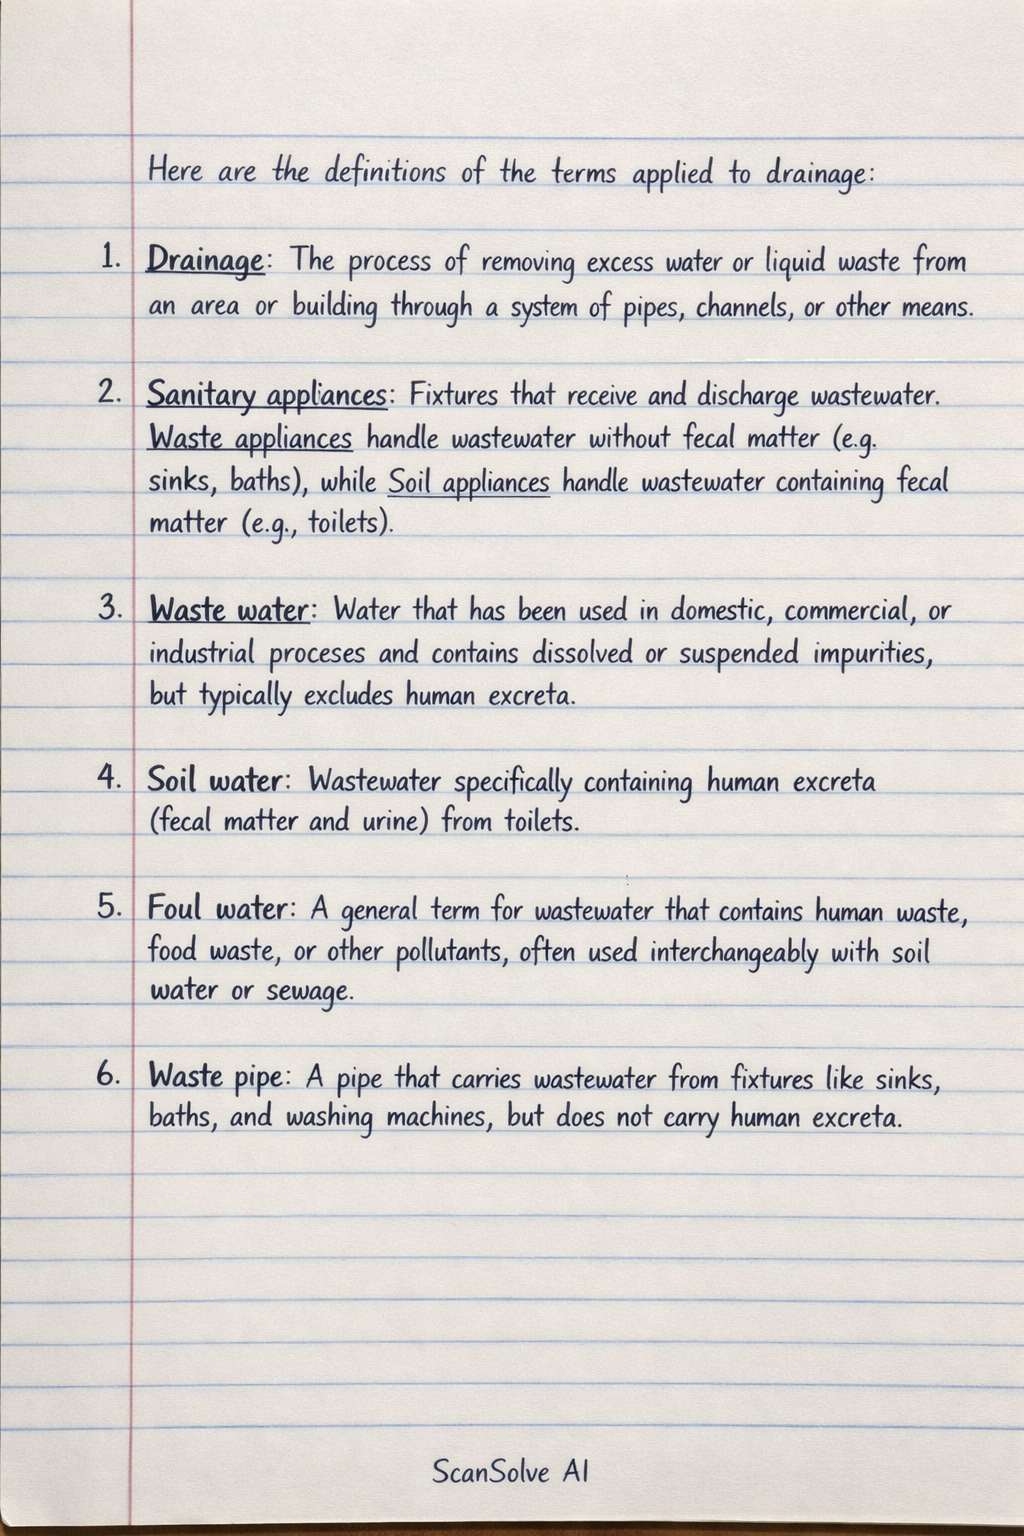 Here are the definitions of the terms applied to drainage:
1. Drainage: The process of removing excess water or liquid waste from
an area or building through a system of pipes, channels, or other means.
2. Sanitary appliances: Fixtures that receive and discharge wastewater.
Waste appliances handle wastewater without fecal matter (e.g.
sinks, baths), while Soil appliances handle wastewater containing fecal
matter (e.g., toilets).
3. Waste water: Water that has been used in domestic, commercial, or
industrial proceses and contains dissolved or suspended impurities,
but typically excludes human excreta.
4. Soil water: Wastewater specifically containing human excreta
(fecal matter and urine) from toilets.
5. Foul water: A general term for wastewater that contains human waste,
food waste, or other pollutants, often used interchangeably with soil
water or sewage.
6. Waste pipe: A pipe that carries wastewater from fixtures like sinks,
baths, and washing machines, but does not carry human excreta.
ScanSolve AI